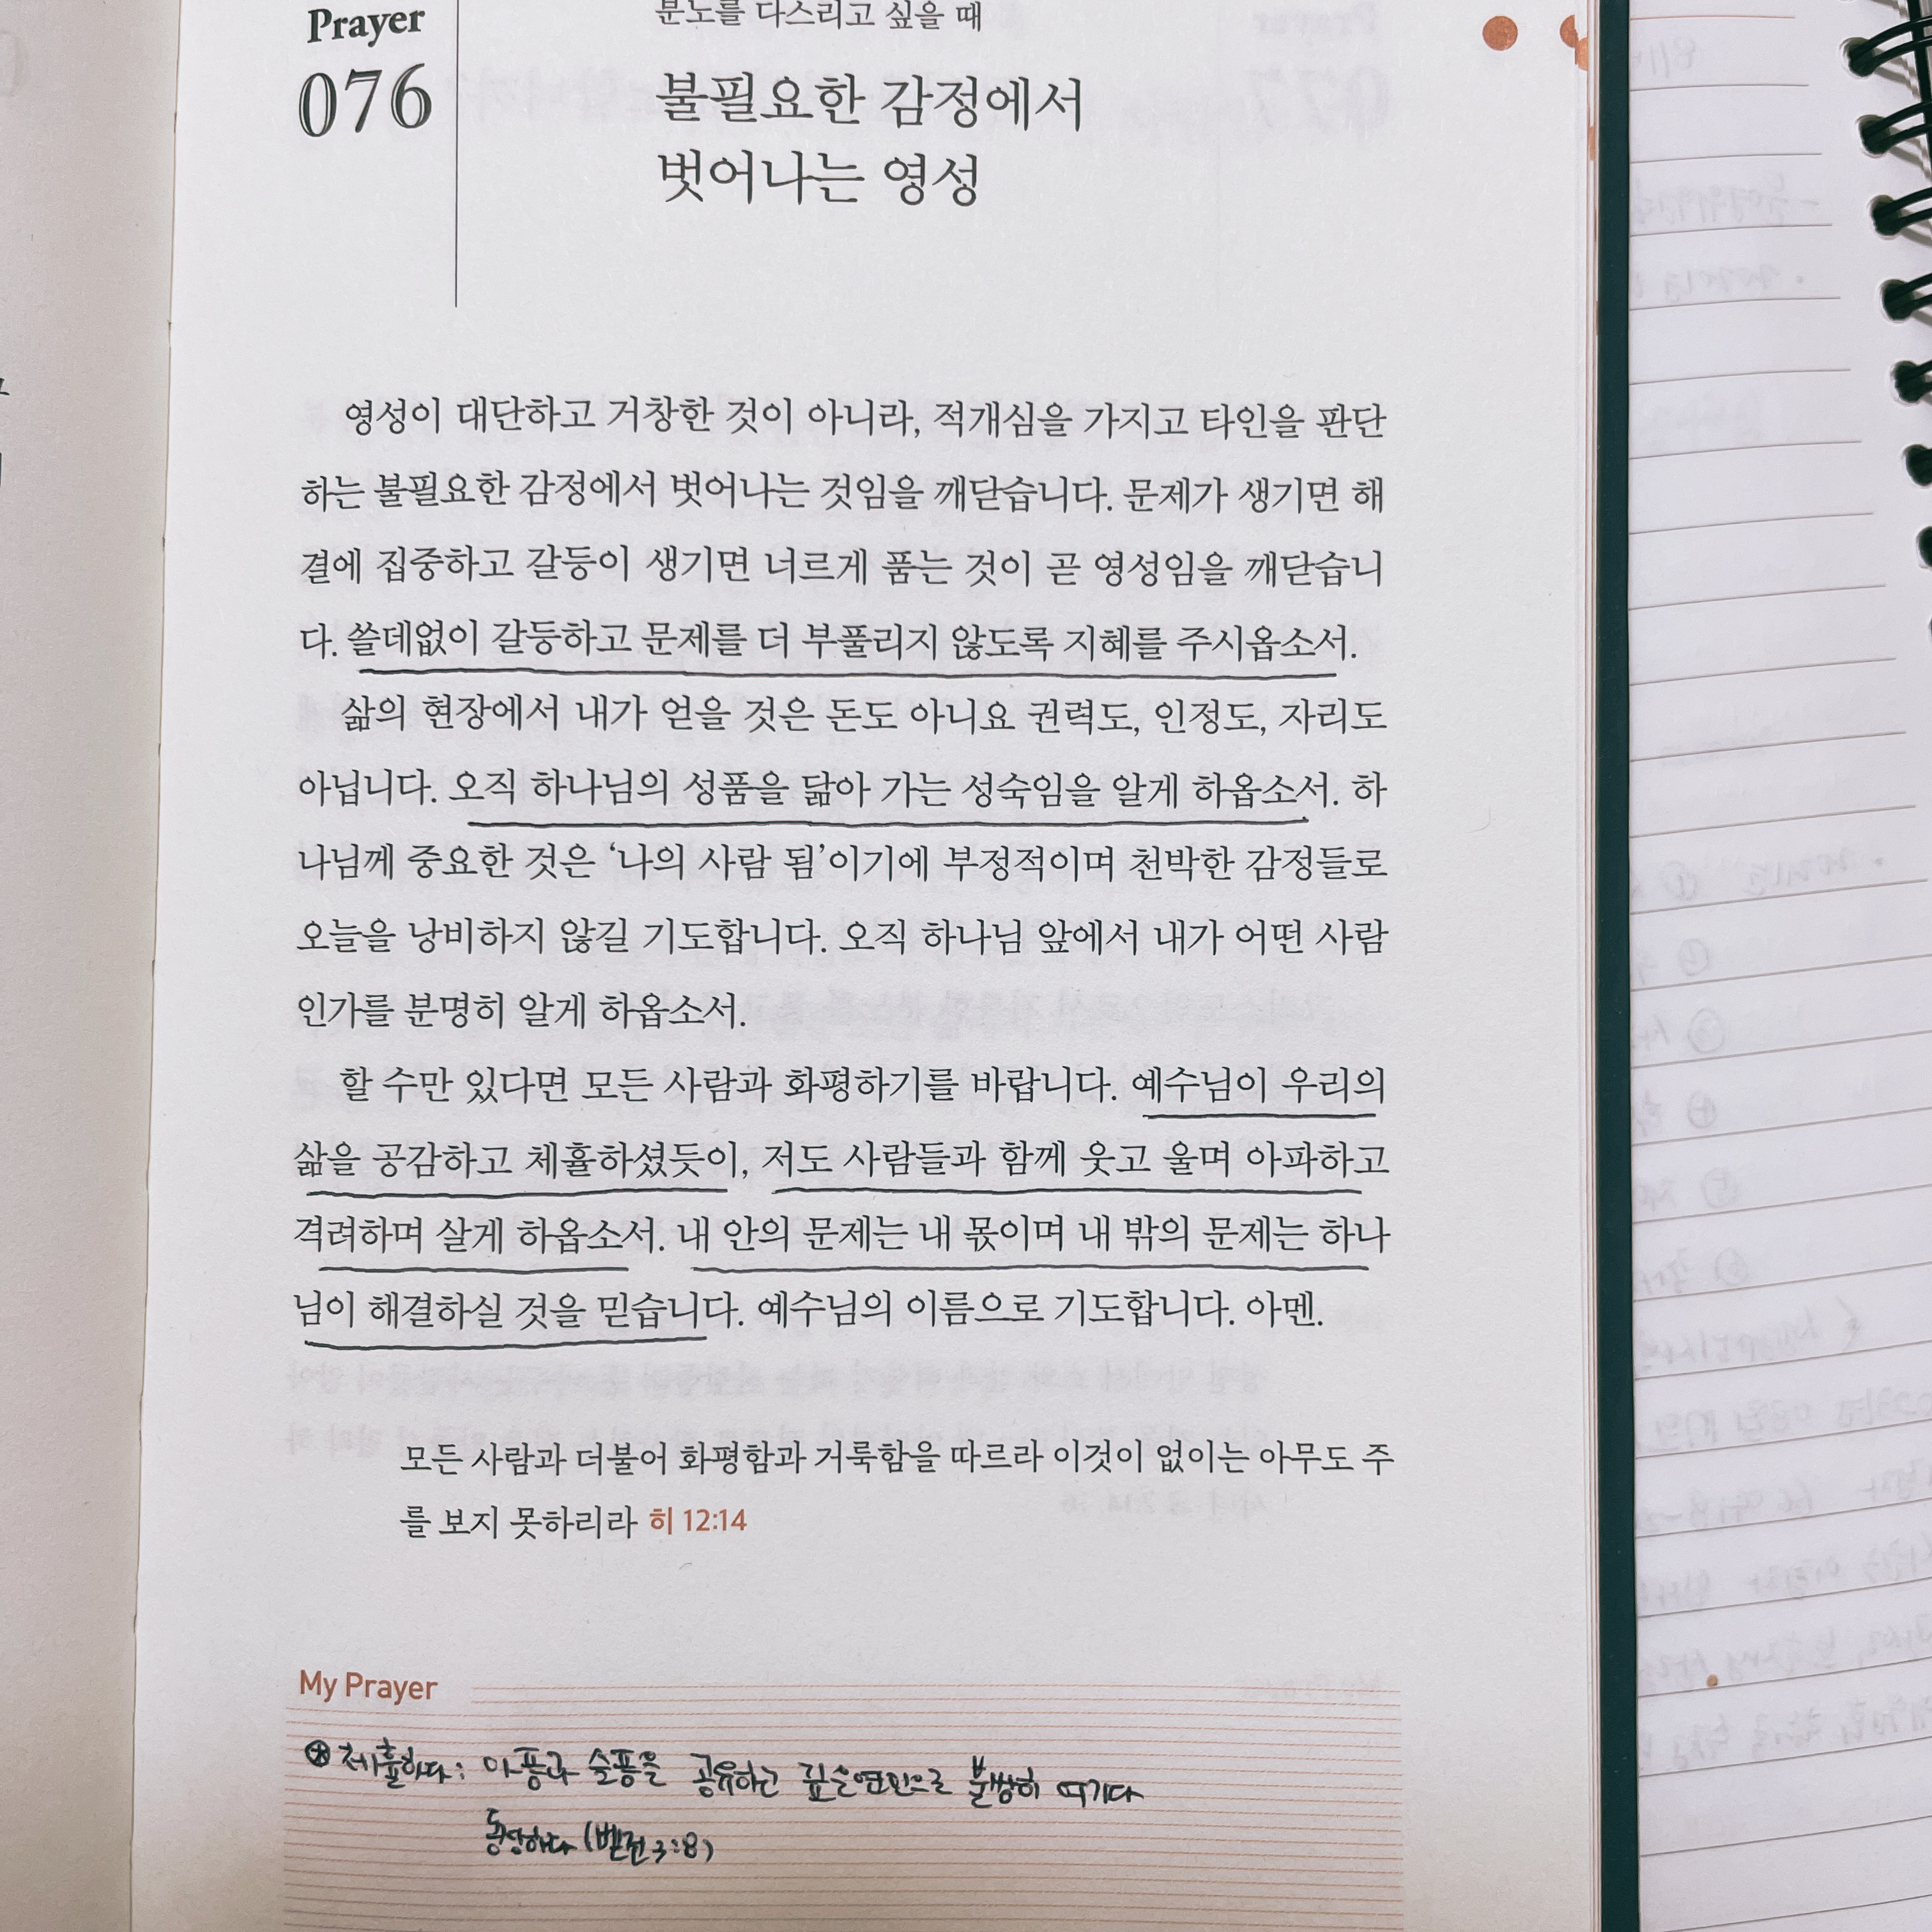 Prayer
076
분노를 다스리고 싶을 때
불필요한 감정에서
벗어나는 영성
영성이 대단하고 거창한 것이 아니라, 적개심을 가지고 타인을 판단
하는 불필요한 감정에서 벗어나는 것임을 깨닫습니다. 문제가 생기면 해
결에 집중하고 갈등이 생기면 너르게 품는 것이 곧 영성임을 깨닫습니
다. 쓸데없이 갈등하고 문제를 더 부풀리지 않도록 지혜를 주시옵소서.
삶의 현장에서 내가 얻을 것은 돈도 아니요 권력도, 인정도, 자리도
아닙니다. 오직 하나님의 성품을 닮아 가는 성숙임을 알게 하옵소서. 하
나님께 중요한 것은 ‘나의 사람 됨’이기에 부정적이며 천박한 감정들로
오늘을 낭비하지 않길 기도합니다. 오직 하나님 앞에서 내가 어떤 사람
인가를 분명히 알게 하옵소서.
할 수만 있다면 모든 사람과 화평하기를 바랍니다. 예수님이 우리의
삶을 공감하고 체휼하셨듯이, 저도 사람들과 함께 웃고 울며 아파하고
격려하며 살게 하옵소서. 내 안의 문제는 내 몫이며 내 밖의 문제는 하나
님이 해결하실 것을 믿습니다. 예수님의 이름으로 기도합니다. 아멘.
모든 사람과 더불어 화평함과 거룩함을 따르라 이것이 없이는 아무도 주
를 보지 못하리라 히 12:14
My Prayer
체휼하다: 아픔과 슬픔을 공유하고 깊은 연민으로 불쌍히 여기다
동정하다 (벧전 3:8)